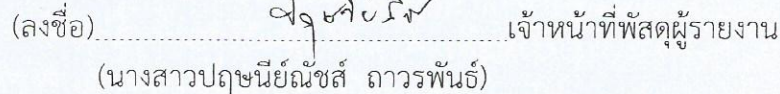 (ลงชื่อ)........................................................................เจ้าหน้าที่พัสดุผู้รายงาน
(นางสาวปฤษนีย์ณัชส์ ถาวรพันธ์)